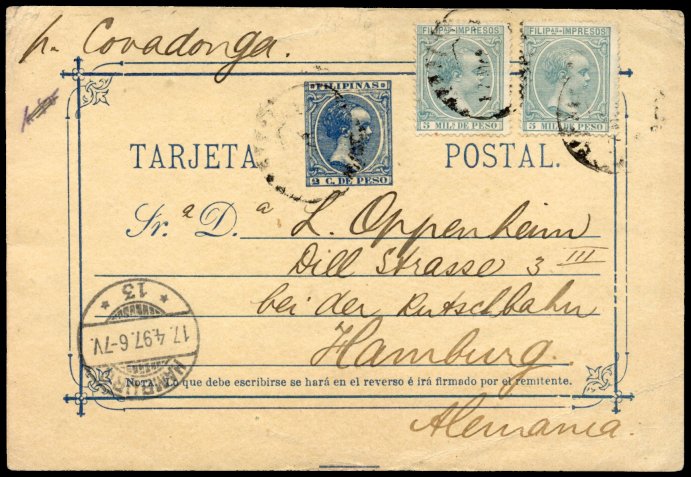 pr. Covadonga.
FILIPAS-IMPRESOS
5 MILS DE PESO
FILIPAS-IMPRESOS
5 MILS DE PESO
FILIPINAS
2 C. DE PESO
TARJETA POSTAL.
Sr.a D.a L. Oppenheim
Dill Strasse 3 III
bei der Rutschbahn
Hamburg.
HAMBURG
17.4.97.6-7V.
* 13 *
NOTA: Lo que debe escribirse se hará en el reverso é irá firmado por el remitente.
Alemania.